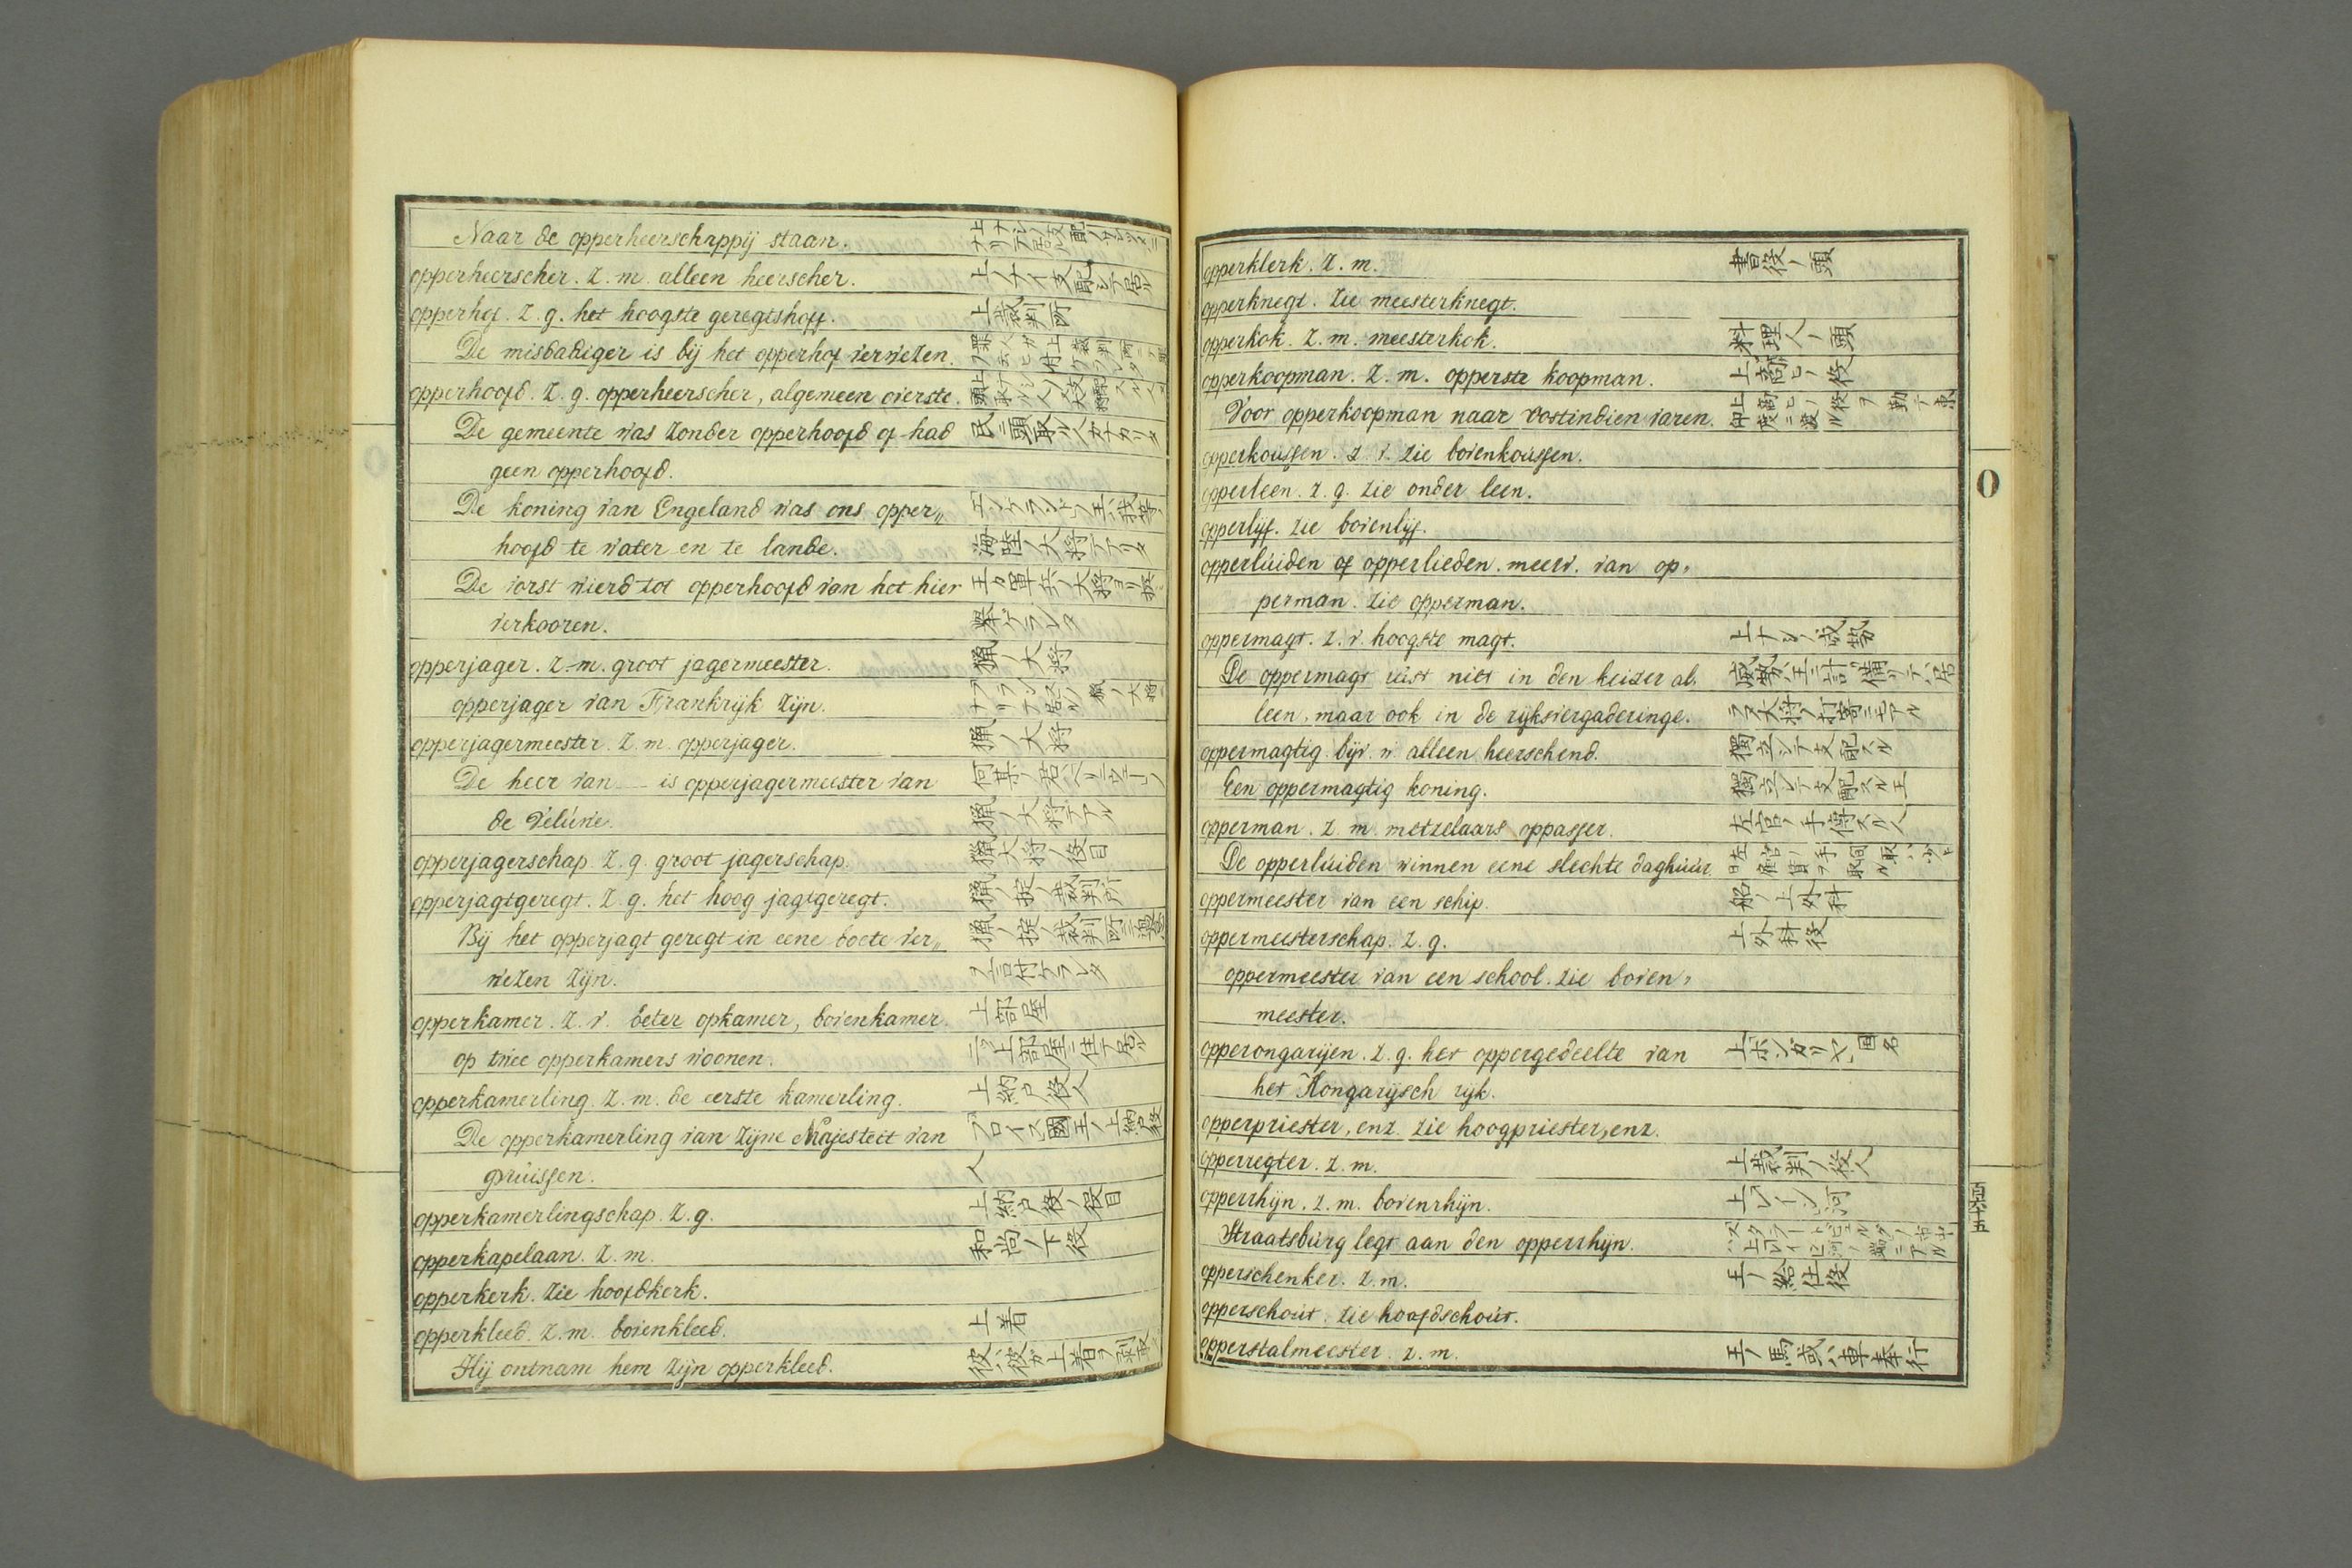 Naar de opperheerschappij staan.
opperheerscher. z. m. alleen heerscher. 上ナイ支配シテ居ル
opperhof. z. g. het hoogste geregtshoff. 上裁判所
De misdadiger is bij het opperhof verwezen.
opperhoofd. z. g. opperheerscher, algemeen overste.
De gemeente was zonder opperhoofd of had
geen opperhoofd.
De koning van Engeland was ons opper„
hoofd te water en te lande. 海陸ノ大将デアリタ
De vorst wierd tot opperhoofd van het hier
verkooren. 挙ゲラレタ
opperjager. z. m. groot jagermeester. 猟ノ大将
opperjager van Frankrijk zijn. フランスノ猟ノ大将ナリテ居ル
opperjagermeester. z. m. opperjager. 猟ノ大将
De heer van — is opperjagermeester van
de Veluwe. 猟ノ大将デアル
opperjagerschap. z. g. groot jagerschap. 猟大将ノ役目
opperjagtgeregt. z. g. het hoog jagtgeregt. 猟ノ掟ノ裁判所
Bij het opperjagt geregt in eene boete ver„
wezen zijn. ヲ言付ケラレタ
opperkamer. z. v. beter opkamer, bovenkamer. 上部屋
op twee opperkamers woonen. 二ツノ上部屋ニ住テ居ル
opperkamerling. z. m. de eerste kamerling. 上納戸役人
De opperkamerling van zijne Majesteit van プロイス國王ノ上納戸役
pruissen. 人
opperkamerlingschap. z. g. 上納戸役ノ役目
opperkapelaan. z. m. 和尚ノ下役
opperkerk. zie hoofdkerk.
opperkleed. z. m. bovenkleed. 上着
Hij ontnam hem zijn opperkleed. 彼ハ彼ガ上着ヲ剥取タ
opperklerk. z. m. 書役ノ頭
opperknegt. zie meesterknegt.
opperkok. z. m. meesterkok. 料理人ノ頭
opperkoopman. z. m. opperste koopman. 上商ヒノ役
Voor opperkoopman naar oostindien varen. 上商ヒノ役ヲ勤テ東印度ニ渡ル
opperkoussen. z. v. zie bovenkoussen.
opperleen. z. g. zie onder leen.
opperlijf. zie bovenlijf.
opperluiden of opperlieden. meerv. van op„
perman. zie opperman.
oppermagt. z. v. hoogste magt. 上ナシノ威勢
De oppermagt rust niet in den keizer al„
leen, maar ook in de rijksvergaderinge.
oppermagtig. bijv. w. alleen heerschend. 獨立シテ支配スル
Een oppermagtig koning. 獨立シテ支配スル王
opperman. z. m. metzelaars oppasser. 左官ノ手傳スル人
De opperluiden winnen eene slechte daghuur.
oppermeester van een schip. 船ノ上外科
oppermeesterschap. z. g. 上外科役
oppermeester van een school. zie boven„
meester.
opperongarijen. z. g. het oppergedeelte van 上ホンガリヤ 国名
het Hongarijsch rijk.
opperpriester, enz. zie hoogpriester, enz.
opperregter. z. m. 上裁判ノ役人
opperrhijn. z. m. bovenrhijn. 上レーン河
Straatsburg legt aan den opperrhijn.
opperschenker. z. m. 王ノ給仕役
opperschout. zie hoofdschout.
opperstalmeester. z. m. 王ノ馬或ハ車奉行
O
百六十五